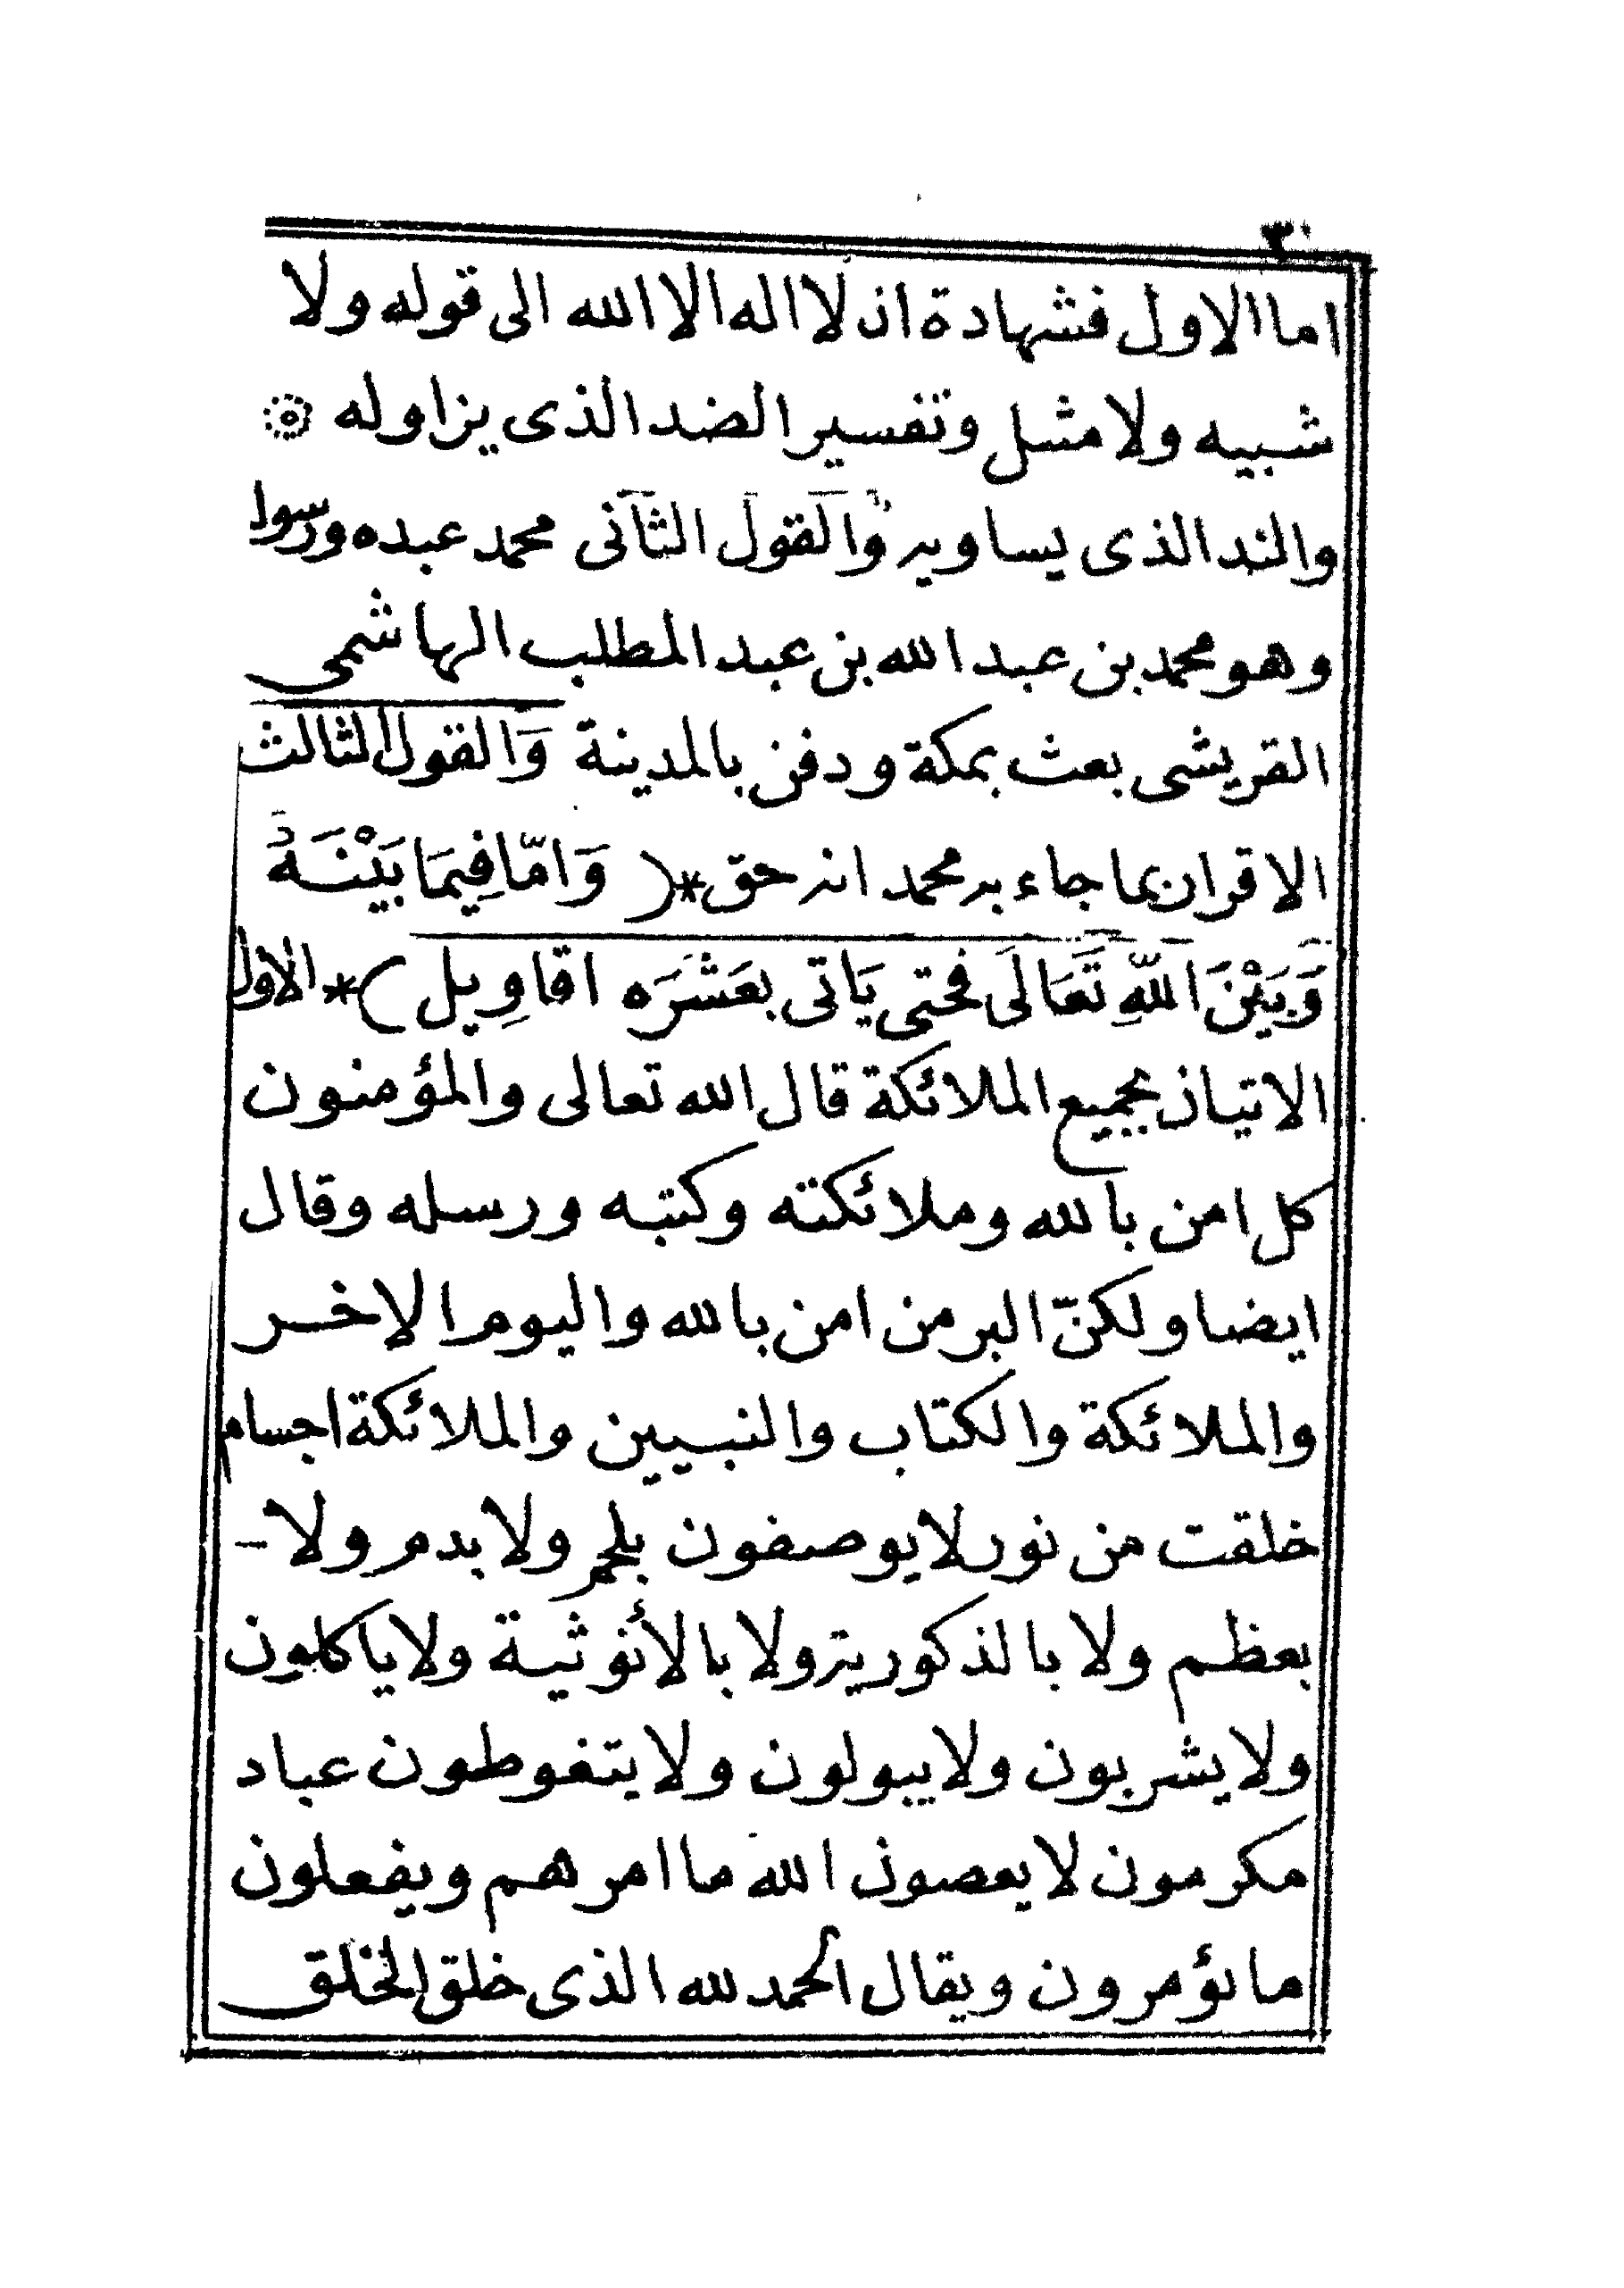 ٣٠
اما الاول فشهادة ان لا اله الا الله الى قوله ولا
شبيه ولا مثل وتفسير الضد الذى يزاوله
والند الذى يساويه والقول الثانى محمد عبده ورسوله
وهو محمد بن عبد الله بن عبد المطلب الهاشمى
القريشى بعث بمكة ودفن بالمدينة وَالقول الثالث
الاقران بما جاء به محمد انه حق *( وَامّا فِيمَا بَيْنَهُ
وَبَيْنَ اللّهِ تَعَالَى فحتى يَاتى بعَشَرَه اقاوِيل )* الاول
الاتيان بجميع الملائكة قال الله تعالى والمؤمنون
كل امن بالله وملائكته وكتبه ورسله وقال
ايضا ولكنّ البر من امن بالله واليوم الاخر
والملائكة والكتاب والنبيين والملائكة اجسام
خلقت من نور لا يوصفون بلحم ولا بدم ولا -
بعظم ولا بالذكورية ولا بالأنوثية ولا ياكلون
ولا يشربون ولا يبولون ولا يتغوطون عباد
مكرمون لا يعصون الله ما امرهم ويفعلون
ما يؤمرون ويقال الحمد لله الذى خلق الخلق